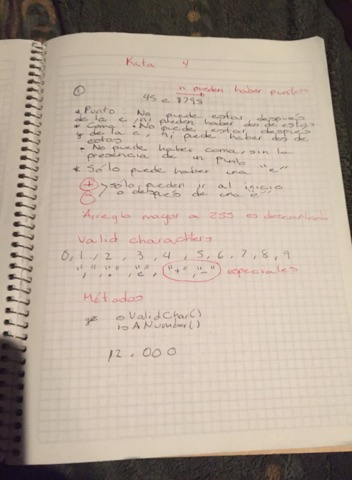 Kata 4
n pueden haber puntos
①
45 e 8795
* Punto: No puede estar después
de la e ni pueden haber dos de estos
* Coma: • No puede estar después
y de la e, ni puede haber dos de
estas
• No puede haber coma, sin la
presencia de un punto
* Solo puede haber una "e"
+ solo pueden ir al inicio
- o después de una e
Arreglo mayor a 255 es descartado
Valid characters
0, 1, 2, 3, 4, 5, 6, 7, 8, 9
",", ".", e, "+", "-" especiales
Métodos
isValidChar()
isANumber()
12.000